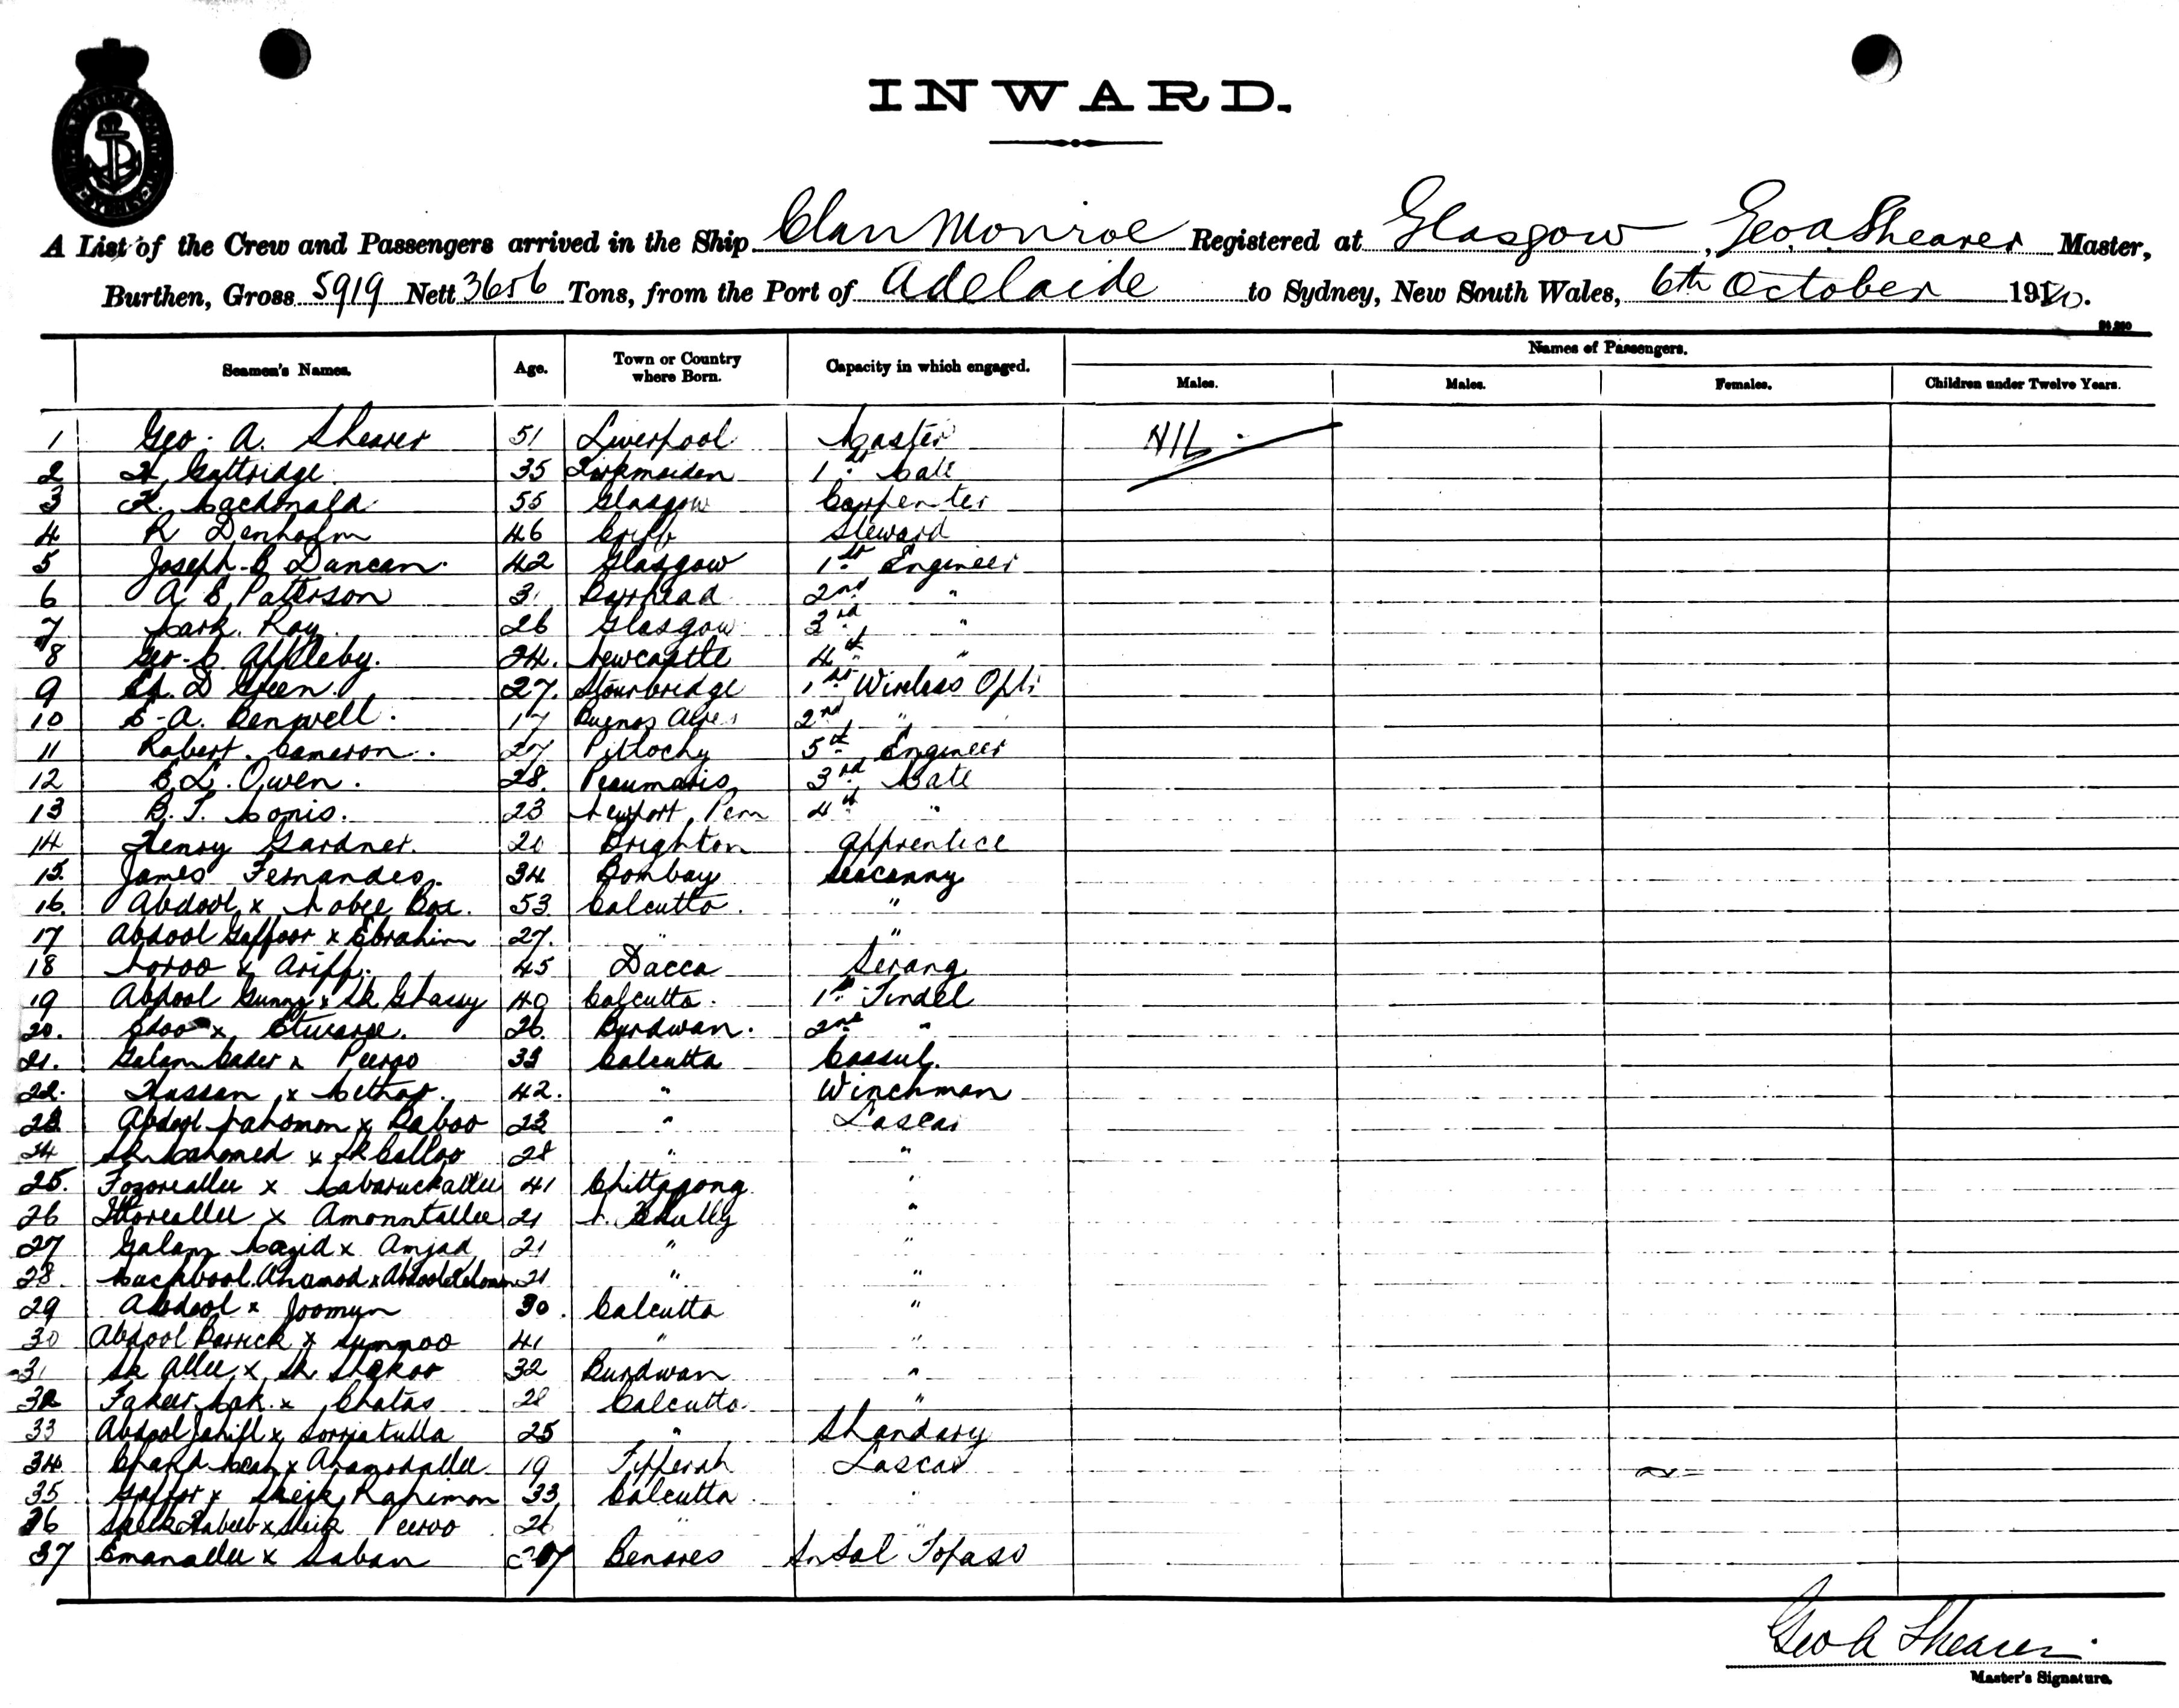 INWARD.
A List of the Crew and Passengers arrived in the Ship Clan Monroe Registered at Glasgow, Geo. A Shearer Master,
Burthen, Gross 5919 Nett 3656 Tons, from the Port of Adelaide to Sydney, New South Wales, 6th October 1920.
Seamen's Names. Age. Town or Country where Born. Capacity in which engaged. Names of Passengers.
Males. Males. Females. Children under Twelve Years.
1 Geo. A. Shearer 51 Liverpool Master NIL
2 Guttridge 35 Kirkmaiden 1st Mate
3 Macdonald 55 Glasgow Carpenter
4 R Denholm 46 Crieff Steward
5 Joseph B Duncan 42 Glasgow 1st Engineer
6 A E Patterson 31 Barrhead 2nd "
7 Mark Roy 26 Glasgow 3rd "
8 Geo. C. Appleby. 24. Newcastle 4th "
9 D Green. 27. Stourbridge 1st Wireless Optr
10 E. A. Benwell. 17 Buenos Aires 2nd "
11 Robert Cameron. 27 Pitlochy 5th Engineer
12 E. L. Owen. 28. Beaumaris 3rd Mate
13 B. T. Monis. 23 Newport 4th "
14 Henry Gardner. 20 Brighton Apprentice
15. James Fernandes. 34 Bombay Seacunny
16. Abdool x Nobee Box. 53 Calcutta. "
17 Abdool Gaffoor x Ebrahim 27. " "
18 Noroo x Ariff. 45 Dacca Serang
19 Abdool Gunny x Sk Ghassy 40 Calcutta. 1st Tindel
20. x 26. Burdwan. 2nd "
21. Golam Cader x Peeroo 33 Calcutta Cassub.
22. Hassan x Methar. 42. " Winchman
23 Abdool Rahomon x Baboo 23 " Lascar
24 Sk Mahomed x Sk Calloo 28 " "
25. Fozoreallee x Mabaruckallee 41 Chittagong "
26 x Amonntallee 21 N. Khully "
27 Golam Mazid x Amjad 21 " "
28. Muckbool Ahamod x Abdool Rahomon 21 " "
29 Abdool x Joomun 30. Calcutta "
30 Abdool Barrick x Summoo 41 " "
31 Sk Allee x Sk Shakoo 32 Burdwan "
32 Fakeer Mak. x 28 Calcutta "
33 Abdool x 25 " Bhandary
34 Chand Meah x Ahamodallee 19 Tipperah Lascar
35 Gaffor x Sheik Rahimon 33 Calcutta "
36 Sheik Habeeb x Sheik Peeroo 26 " "
37 Emanallee x Saban 27 Benares Topass
Geo A Shearer
Master's Signature.